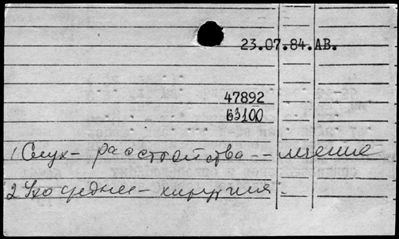 23.07.84.АВ.
47892
63100
1 Слух - расстройства -- лечение
2 Ухо среднее - хирургия.